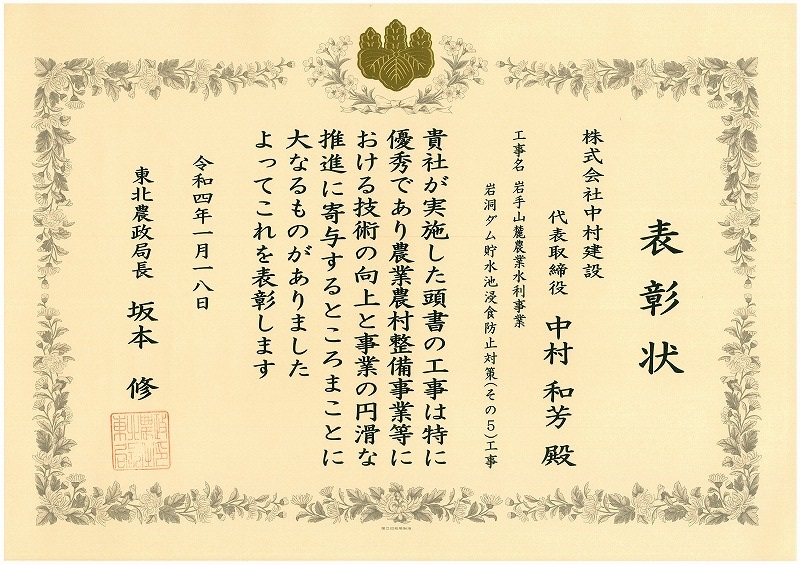 表彰状
株式会社中村建設
代表取締役 中村 和芳 殿
工事名 岩手山麓農業水利事業
岩洞ダム貯水池浸食防止対策(その5)工事
貴社が実施した頭書の工事は特に
優秀であり農業農村整備事業等に
おける技術の向上と事業の円滑な
推進に寄与するところまことに
大なるものがありました
よってこれを表彰します
令和四年一月一八日
東北農政局長 坂本 修